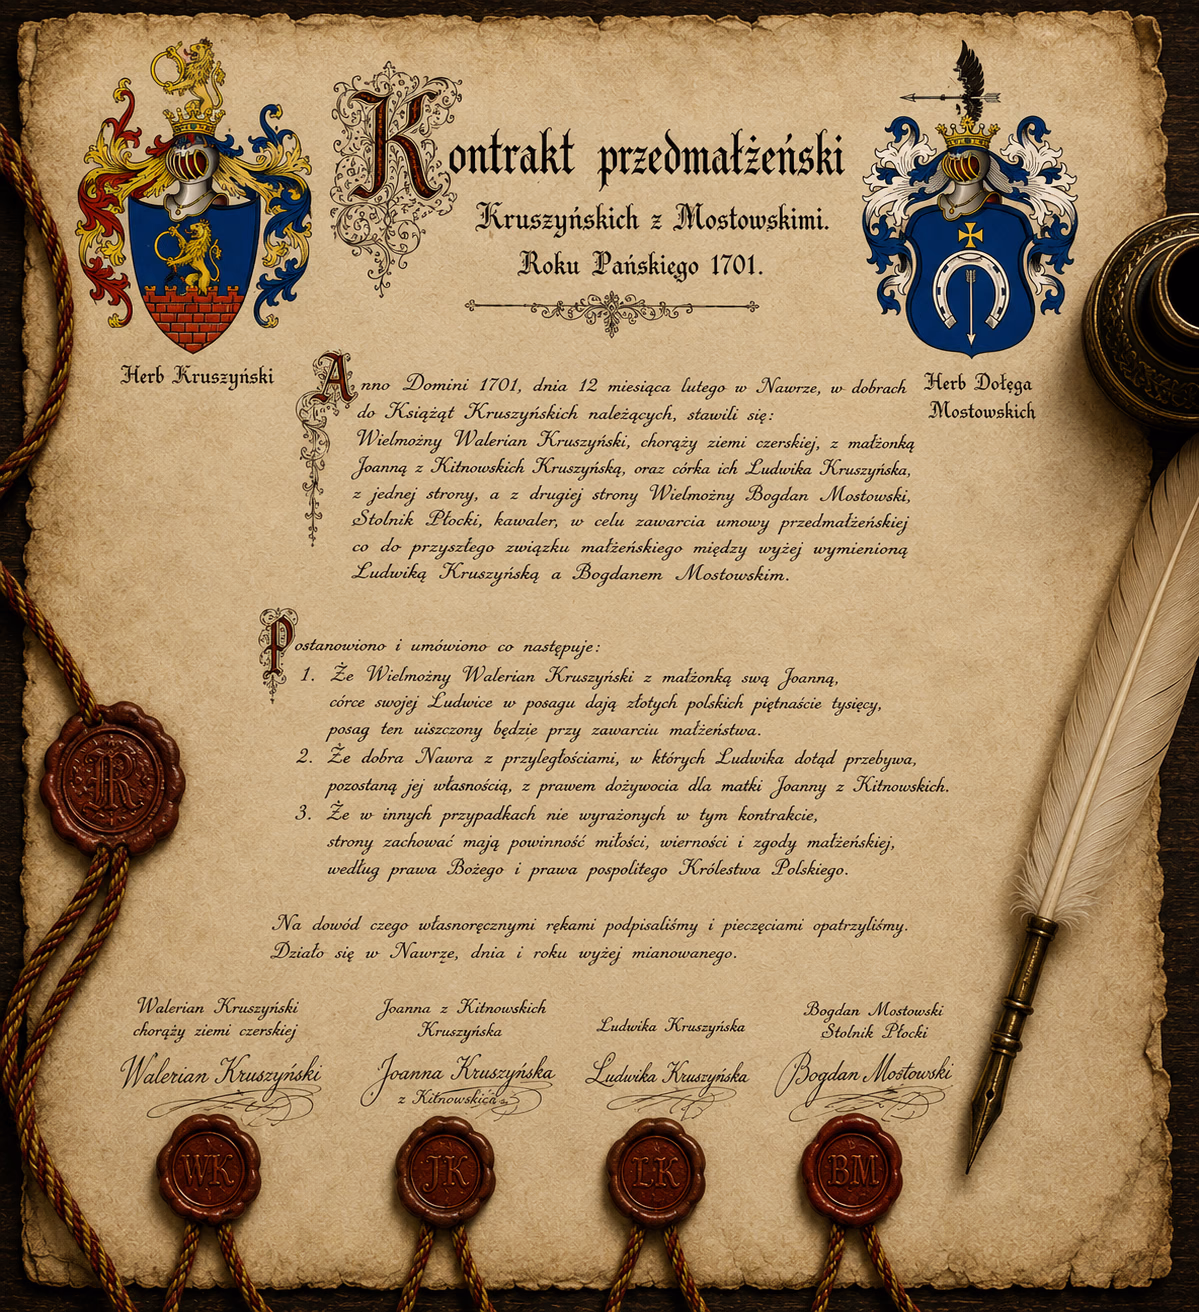 Kontrakt przedmałżeński
Kruszyńskich z Mostowskimi.
Roku Pańskiego 1701.
Herb Kruszyński
Herb Dołęga
Mostowskich
Anno Domini 1701, dnia 12 miesiąca lutego w Nawrze, w dobrach
do Książąt Kruszyńskich należących, stawili się:
Wielmożny Walerian Kruszyński, chorąży ziemi czerskiej, z małżonką
Joanną z Kitnowskich Kruszyńską, oraz córka ich Ludwika Kruszyńska,
z jednej strony, a z drugiej strony Wielmożny Bogdan Mostowski,
Stolnik Płocki, kawaler, w celu zawarcia umowy przedmałżeńskiej
co do przyszłego związku małżeńskiego między wyżej wymienioną
Ludwiką Kruszyńską a Bogdanem Mostowskim.
Postanowiono i umówiono co następuje:
1. Że Wielmożny Walerian Kruszyński z małżonką swą Joanną,
córce swojej Ludwice w posagu dają złotych polskich piętnaście tysięcy,
posag ten uiszczony będzie przy zawarciu małżeństwa.
2. Że dobra Nawra z przyległościami, w których Ludwika dotąd przebywa,
pozostaną jej własnością, z prawem dożywocia dla matki Joanny z Kitnowskich.
3. Że w innych przypadkach nie wyrażonych w tym kontrakcie,
strony zachować mają powinność miłości, wierności i zgody małżeńskiej,
według prawa Bożego i prawa pospolitego Królestwa Polskiego.
Na dowód czego własnoręcznymi rękami podpisaliśmy i pieczęciami opatrzyliśmy.
Działo się w Nawrze, dnia i roku wyżej mianowanego.
Walerian Kruszyński
chorąży ziemi czerskiej
Walerian Kruszyński
Joanna z Kitnowskich
Kruszyńska
Joanna Kruszyńska
z Kitnowskich
Ludwika Kruszyńska
Ludwika Kruszyńska
Bogdan Mostowski
Stolnik Płocki
Bogdan Mostowski
K
WK
JK
LK
BM